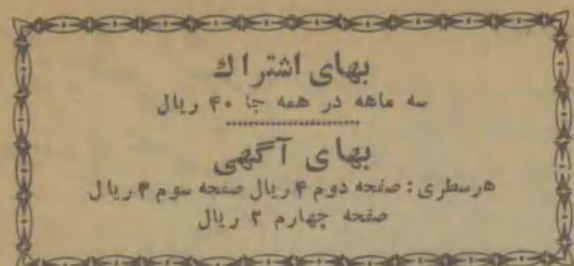 بهای اشتراك
سه ماهه در همه جا ۴۰ ریال
بهای آگهی
هرسطری: صفحه دوم ۴ ریال صفحه سوم ۳ ریال
صفحه چهارم ۲ ریال